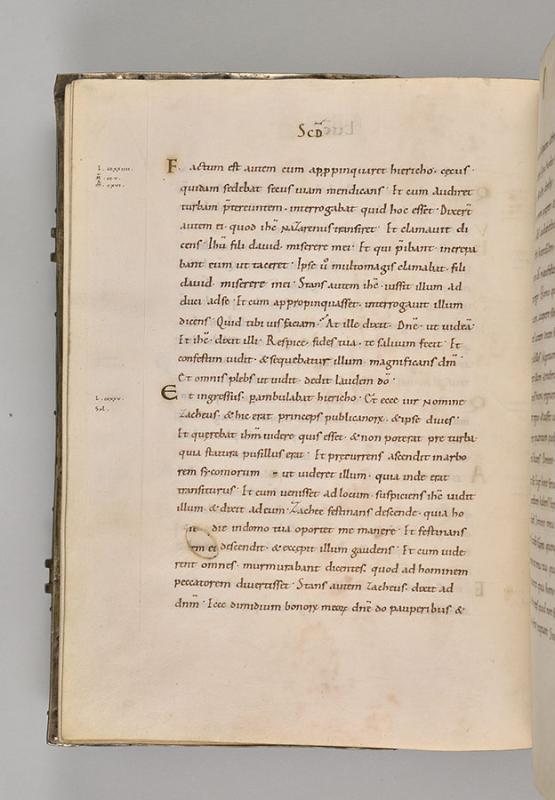 SCD̄
F actum est autem cum appropinquaret hiericho· cęcus·
quidam sedebat secus uiam mendicans· Et cum audiret
turbam p̄tereuntem· interrogabat quid hoc esset· Dixert̄
autem ei· quod ih̄c nazarenus transiret· Et clamauit di
cens· Ihū fili dauid· miserere mei· Et qui p̄ibant· increpa
bant eum ut taceret· Ipse ū multomagis clamabat· fili
dauid· miserere mei· Stans autem ih̄c· iussit illum ad
duci adse· Et cum appropinquasset· interrogauit illum
dicens· Quid tibi uis faciam· At ille dixit· Dn̄e· ut videā·
Et ih̄c· dixit illi· Respice· fides tua· te saluum fecit· Et
confestim uidit· & sequebatur illum· magnificans dm̄·
Et omnis plebs ut uidit· dedit laudem dō·
Et ingressus· pambulabat hiericho· Et ecce uir nomine
Zacheus· & hic erat princeps publicanorꝝ· & ipse diues·
Et querebat ihm̄ uidere quis esset· & non poterat pre turba·
quia statura pusillus erat· Et precurrens ascendit inarbo
rem sycomorum ut uideret illum· quia inde erat
transiturus· Et cum uenisset ad locum· suspiciens ih̄c uidit
illum· & dixit adeum· Zachee festinans descende· quia ho
die indomo tua oportet me manere· Et festinans
descendit· & excepit illum gaudens· Et cum uide
rent omnes· murmurabant dicentes· quod ad hominem
peccatorem diuertisset· Stans autem Zacheus· dixit ad
dnm̄· Ecce dimidium bonorꝝ meorꝝ dn̄e do pauperibus &